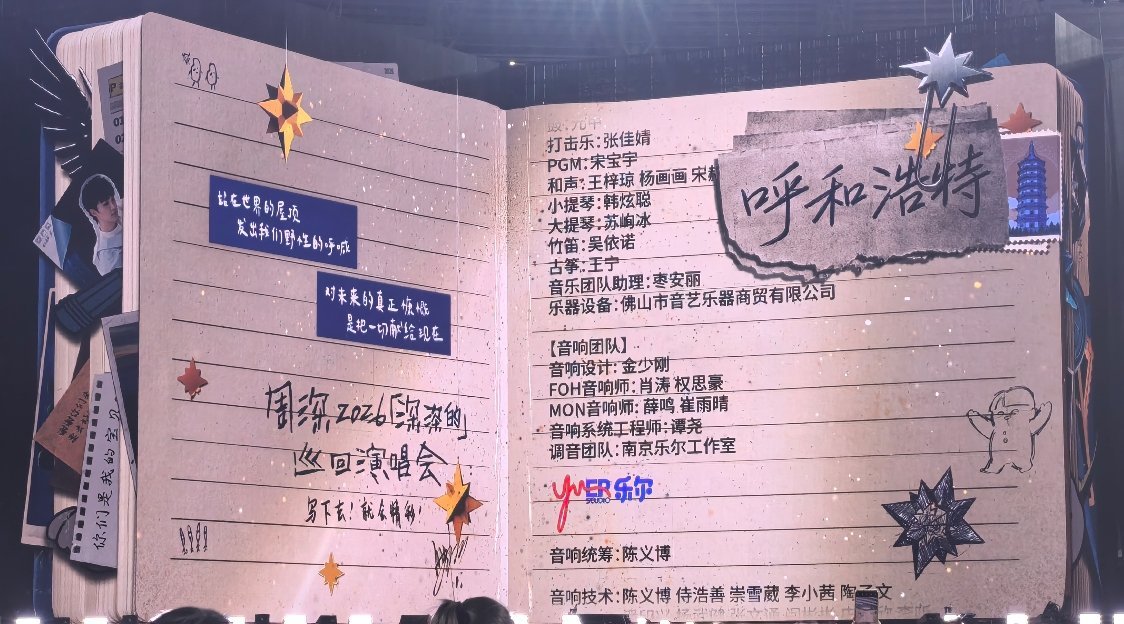 站在世界的屋顶
发出我们野性的呼喊
对未来的真正慷慨
是把一切献给现在
周深2026「深深的」
巡回演唱会
写下去！就会精彩！
你们是我的宝贝
打击乐：张佳婧
PGM：宋宝宇
和声：王梓琼 杨画画
小提琴：韩炫聪
大提琴：苏峋冰
竹笛：吴依诺
古筝：王宁
音乐团队助理：枣安丽
乐器设备：佛山市音艺乐器商贸有限公司
呼和浩特
【音响团队】
音响设计：金少刚
FOH音响师：肖涛 权思豪
MON音响师：薛鸣 崔雨晴
音响系统工程师：谭尧
调音团队：南京乐尔工作室
YUER乐尔
STUDIO
音响统筹：陈义博
音响技术：陈义博 侍浩善 崇雪葳 李小茜